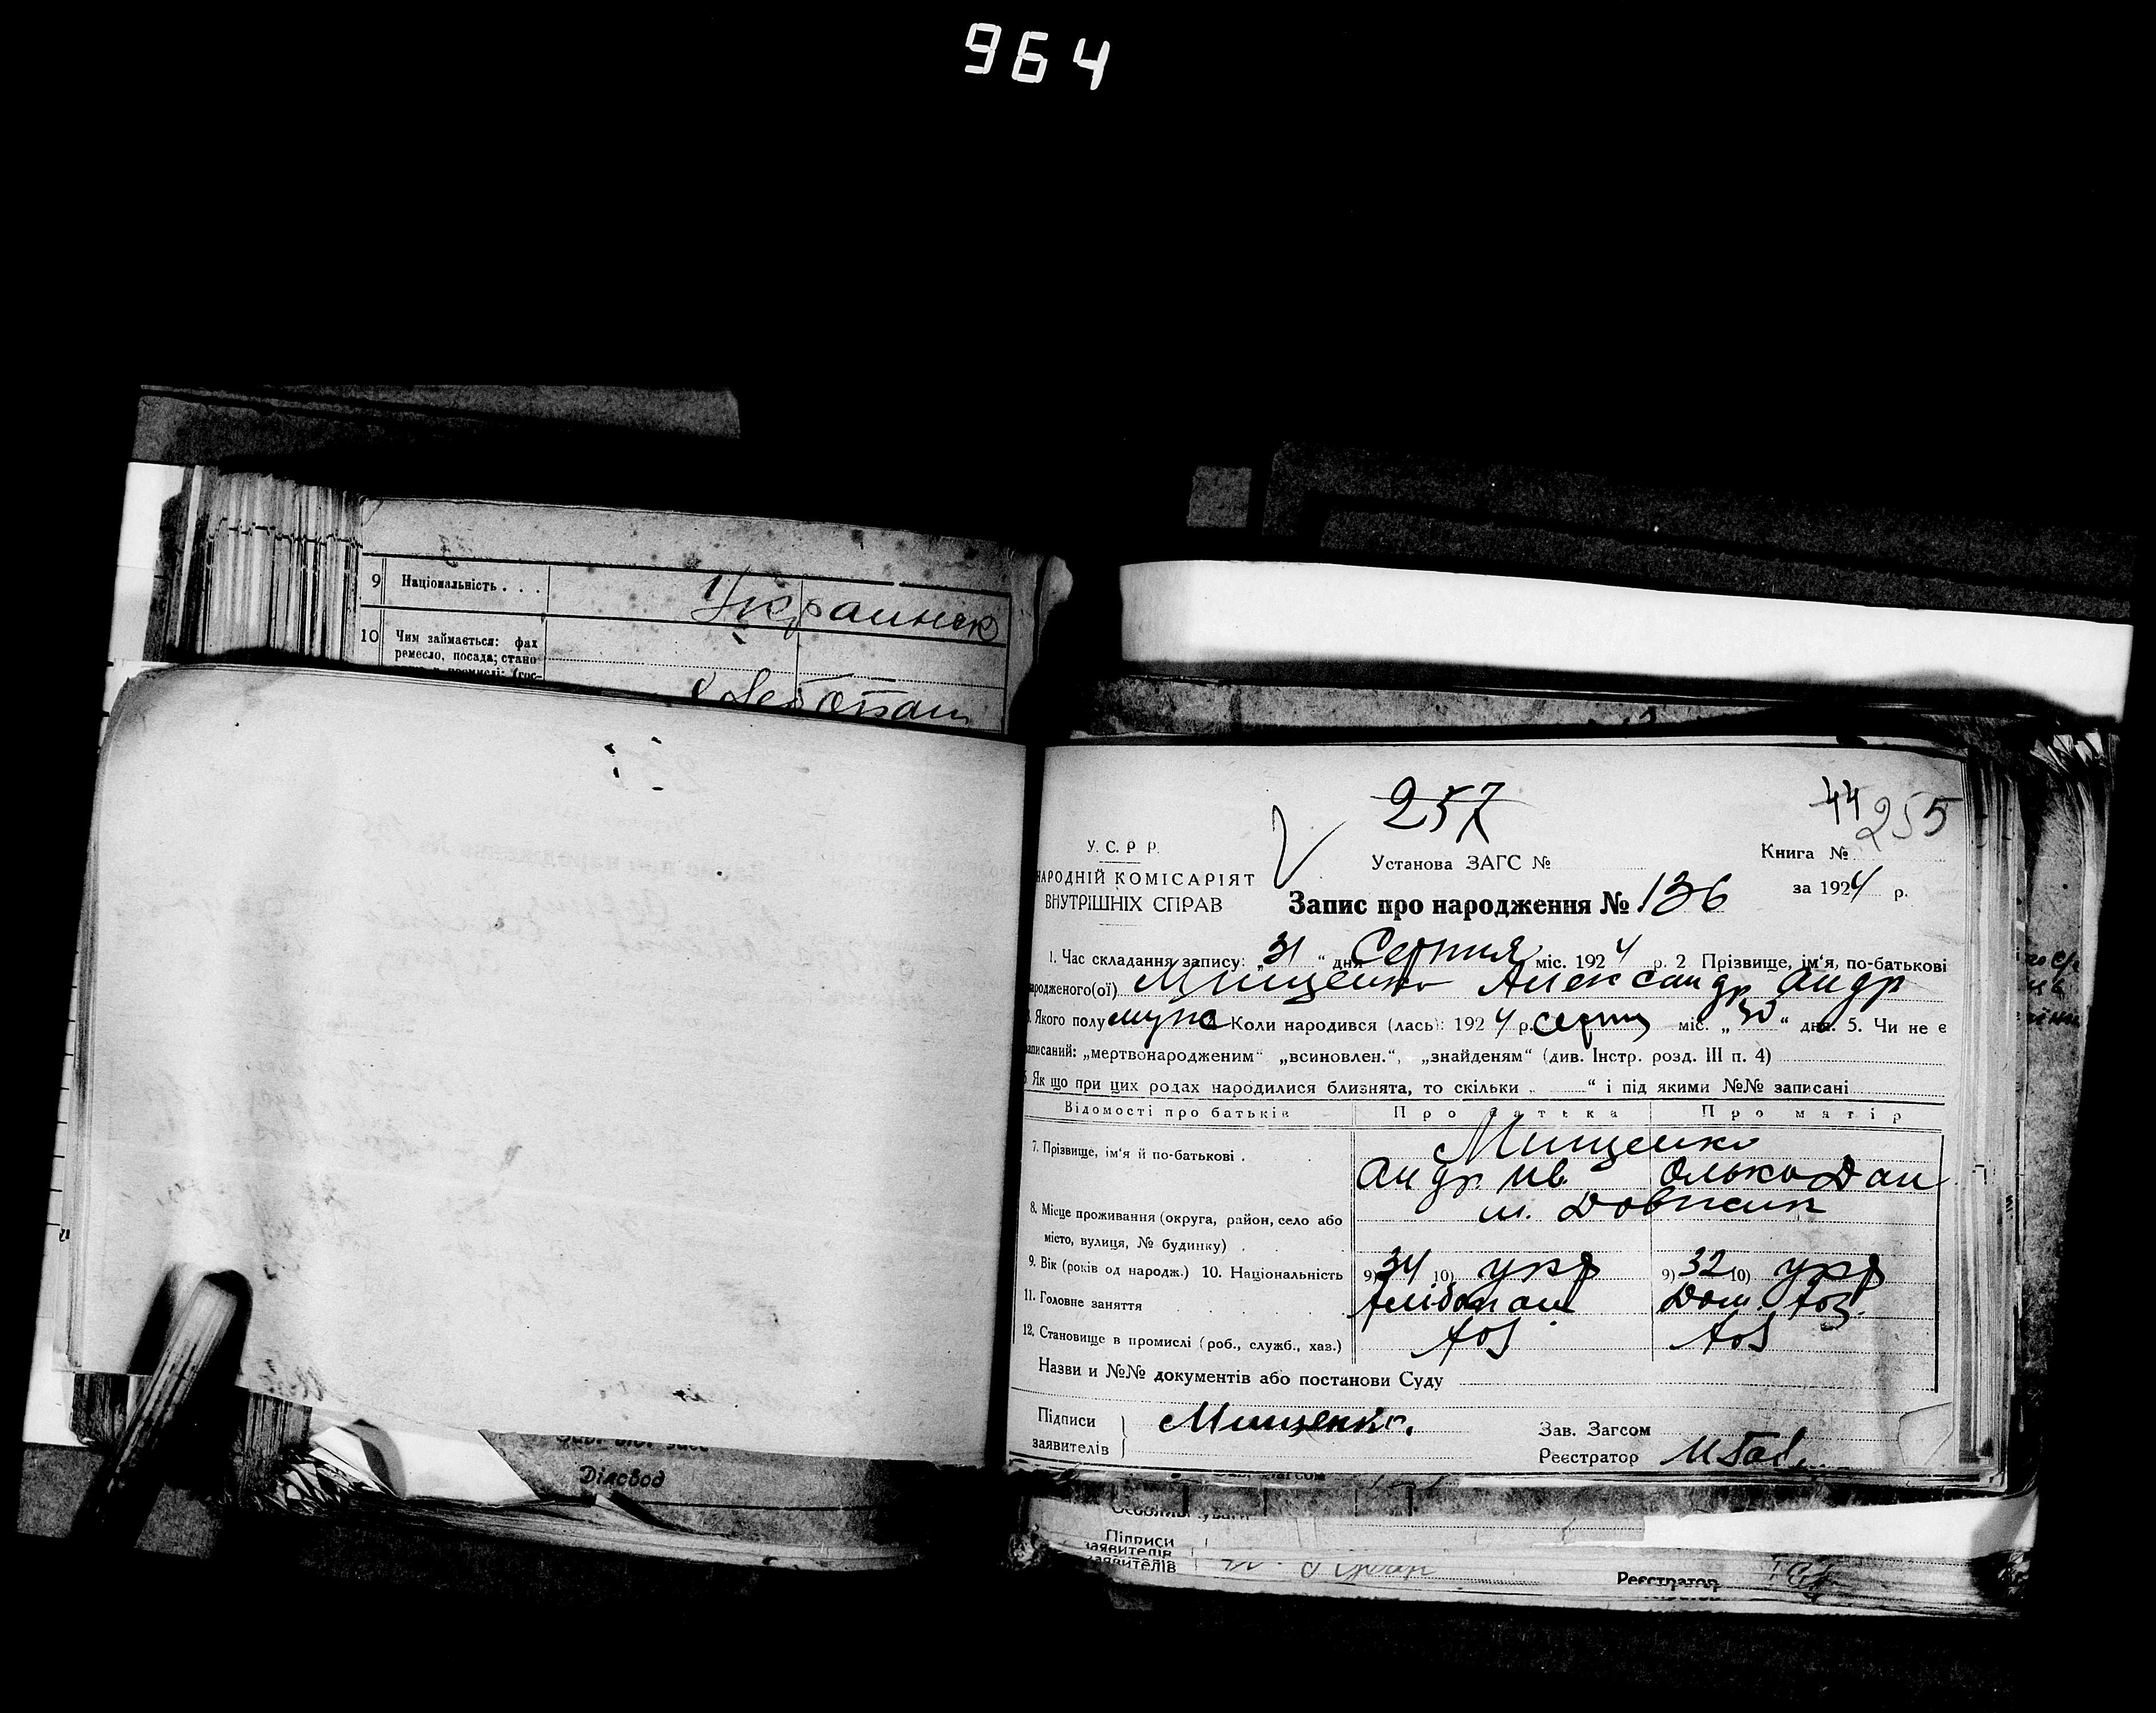 964
9 Національність . . . Украинск
10 Чим займається: фах
ремесло, посада; стано
257
44 255
У. С. Р. Р.
Установа ЗАГС №
Книга №
НАРОДНІЙ КОМІСАРІЯТ
ВНУТРІШНІХ СПРАВ
Запис про народження № 136
за 1924 р.
1. Час складання запису: „31“ дня Серпня міс. 1924 р. 2 Прізвище, ім‘я, по-батькові
ародженого(ої) Мищенко Александр Андр
Якого полу муж Коли народився (лась): 1924 р. серпня міс. „30“ дня. 5. Чи не є
аписаний: „мертвонародженим“ „всиновлен.“, „знайденям“ (див. Інстр. розд. III п. 4)
Як що при цих родах народилися близнята, то скільки „ “ і під якими №№ записані
Відомості про батьків Про батька Про матір
7. Прізвище, ім‘я й по-батькові . Мищенко
Андр. Ив. Олька Дан
8. Місце проживання (округа, район, село або м. Довжик
місто, вулиця, № будинку) .
9. Вік (років од народж.) 10. Національність 9) 34 10) укр 9) 32 10) укр
11. Головне заняття Хлібопаш Дом. хоз.
12. Становище в промислі (роб., служб., хаз.) хоз хоз
Назви и №№ документів або постанови Суду
Підписи
заявителів
Мищенко.
Зав. Загсом
Реєстратор
Діловод
Підписи
заявителів
заявителів
Реєстратор